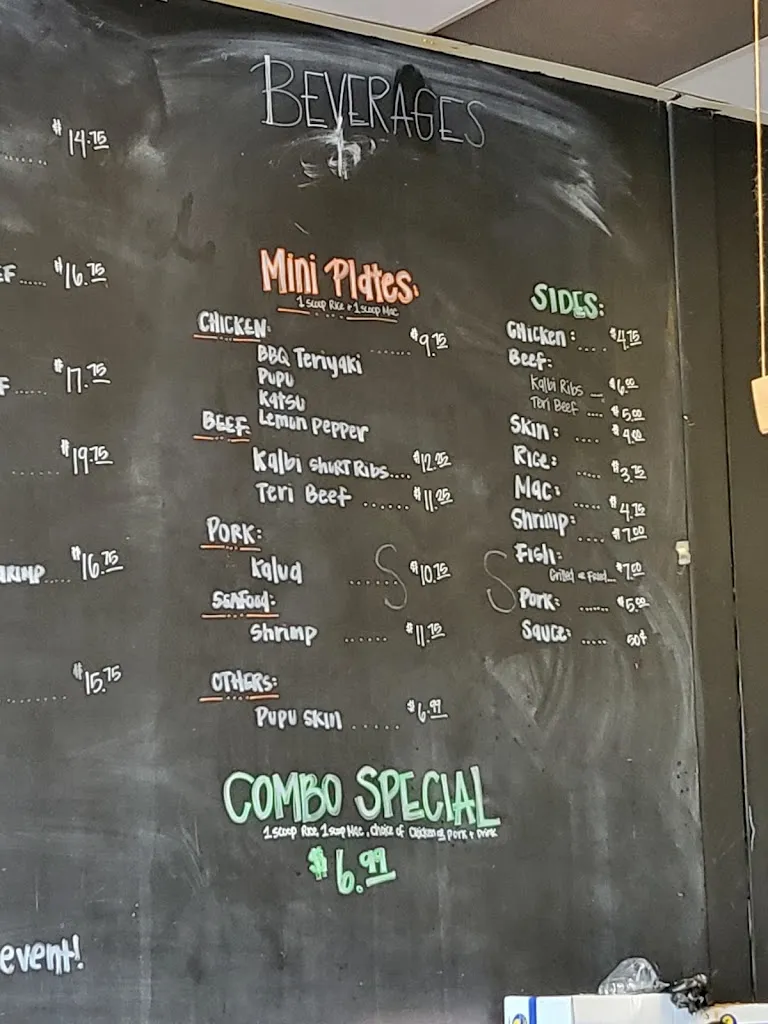 BEVERAGES
$14.75
EF..... $16.75
F ..... $17.75
....... $19.75
HRIMP.... $16.75
........ $15.75
event!
Mini Plates:
1 scoop Rice + 1 scoop Mac
CHICKEN: ...... $9.75
BBQ Teriyaki
Pupu
Katsu
Lemon Pepper
BEEF:
Kalbi Short Ribs.... $12.25
Teri Beef ...... $11.25
PORK:
Kalua ..... $10.75
S
SEAFOOD:
Shrimp ..... $11.75
OTHERS:
PUPU SKIN ..... $6.99
SIDES:
Chicken: .... $4.75
Beef:
Kalbi Ribs ... $6.00
Teri Beef .... $5.00
Skin: .... $4.00
Rice: .... $3.75
Mac: .... $4.75
Shrimp: .... $7.00
Fish:
Grilled or Fried... $7.00
S
Pork: ..... $5.00
Sauce: .... 50¢
COMBO SPECIAL
1 scoop Rice, 1 scoop Mac, choice of Chicken or Pork + Drink
$6.99